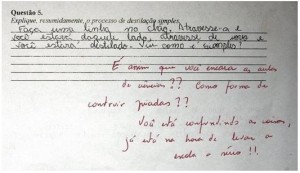 Questão 5.
Explique, resumidamente, o processo de destilação simples.
Faça uma linha no chão. Atravesse-a e
você estará daquele lado, atravesse de novo e
você estará destilado. Viu como é simples!
É assim que você encara as aulas
de ciências?? Como forma de
construir piadas??
Você está confundindo as coisas,
já está na hora de levar a
escola a sério!!